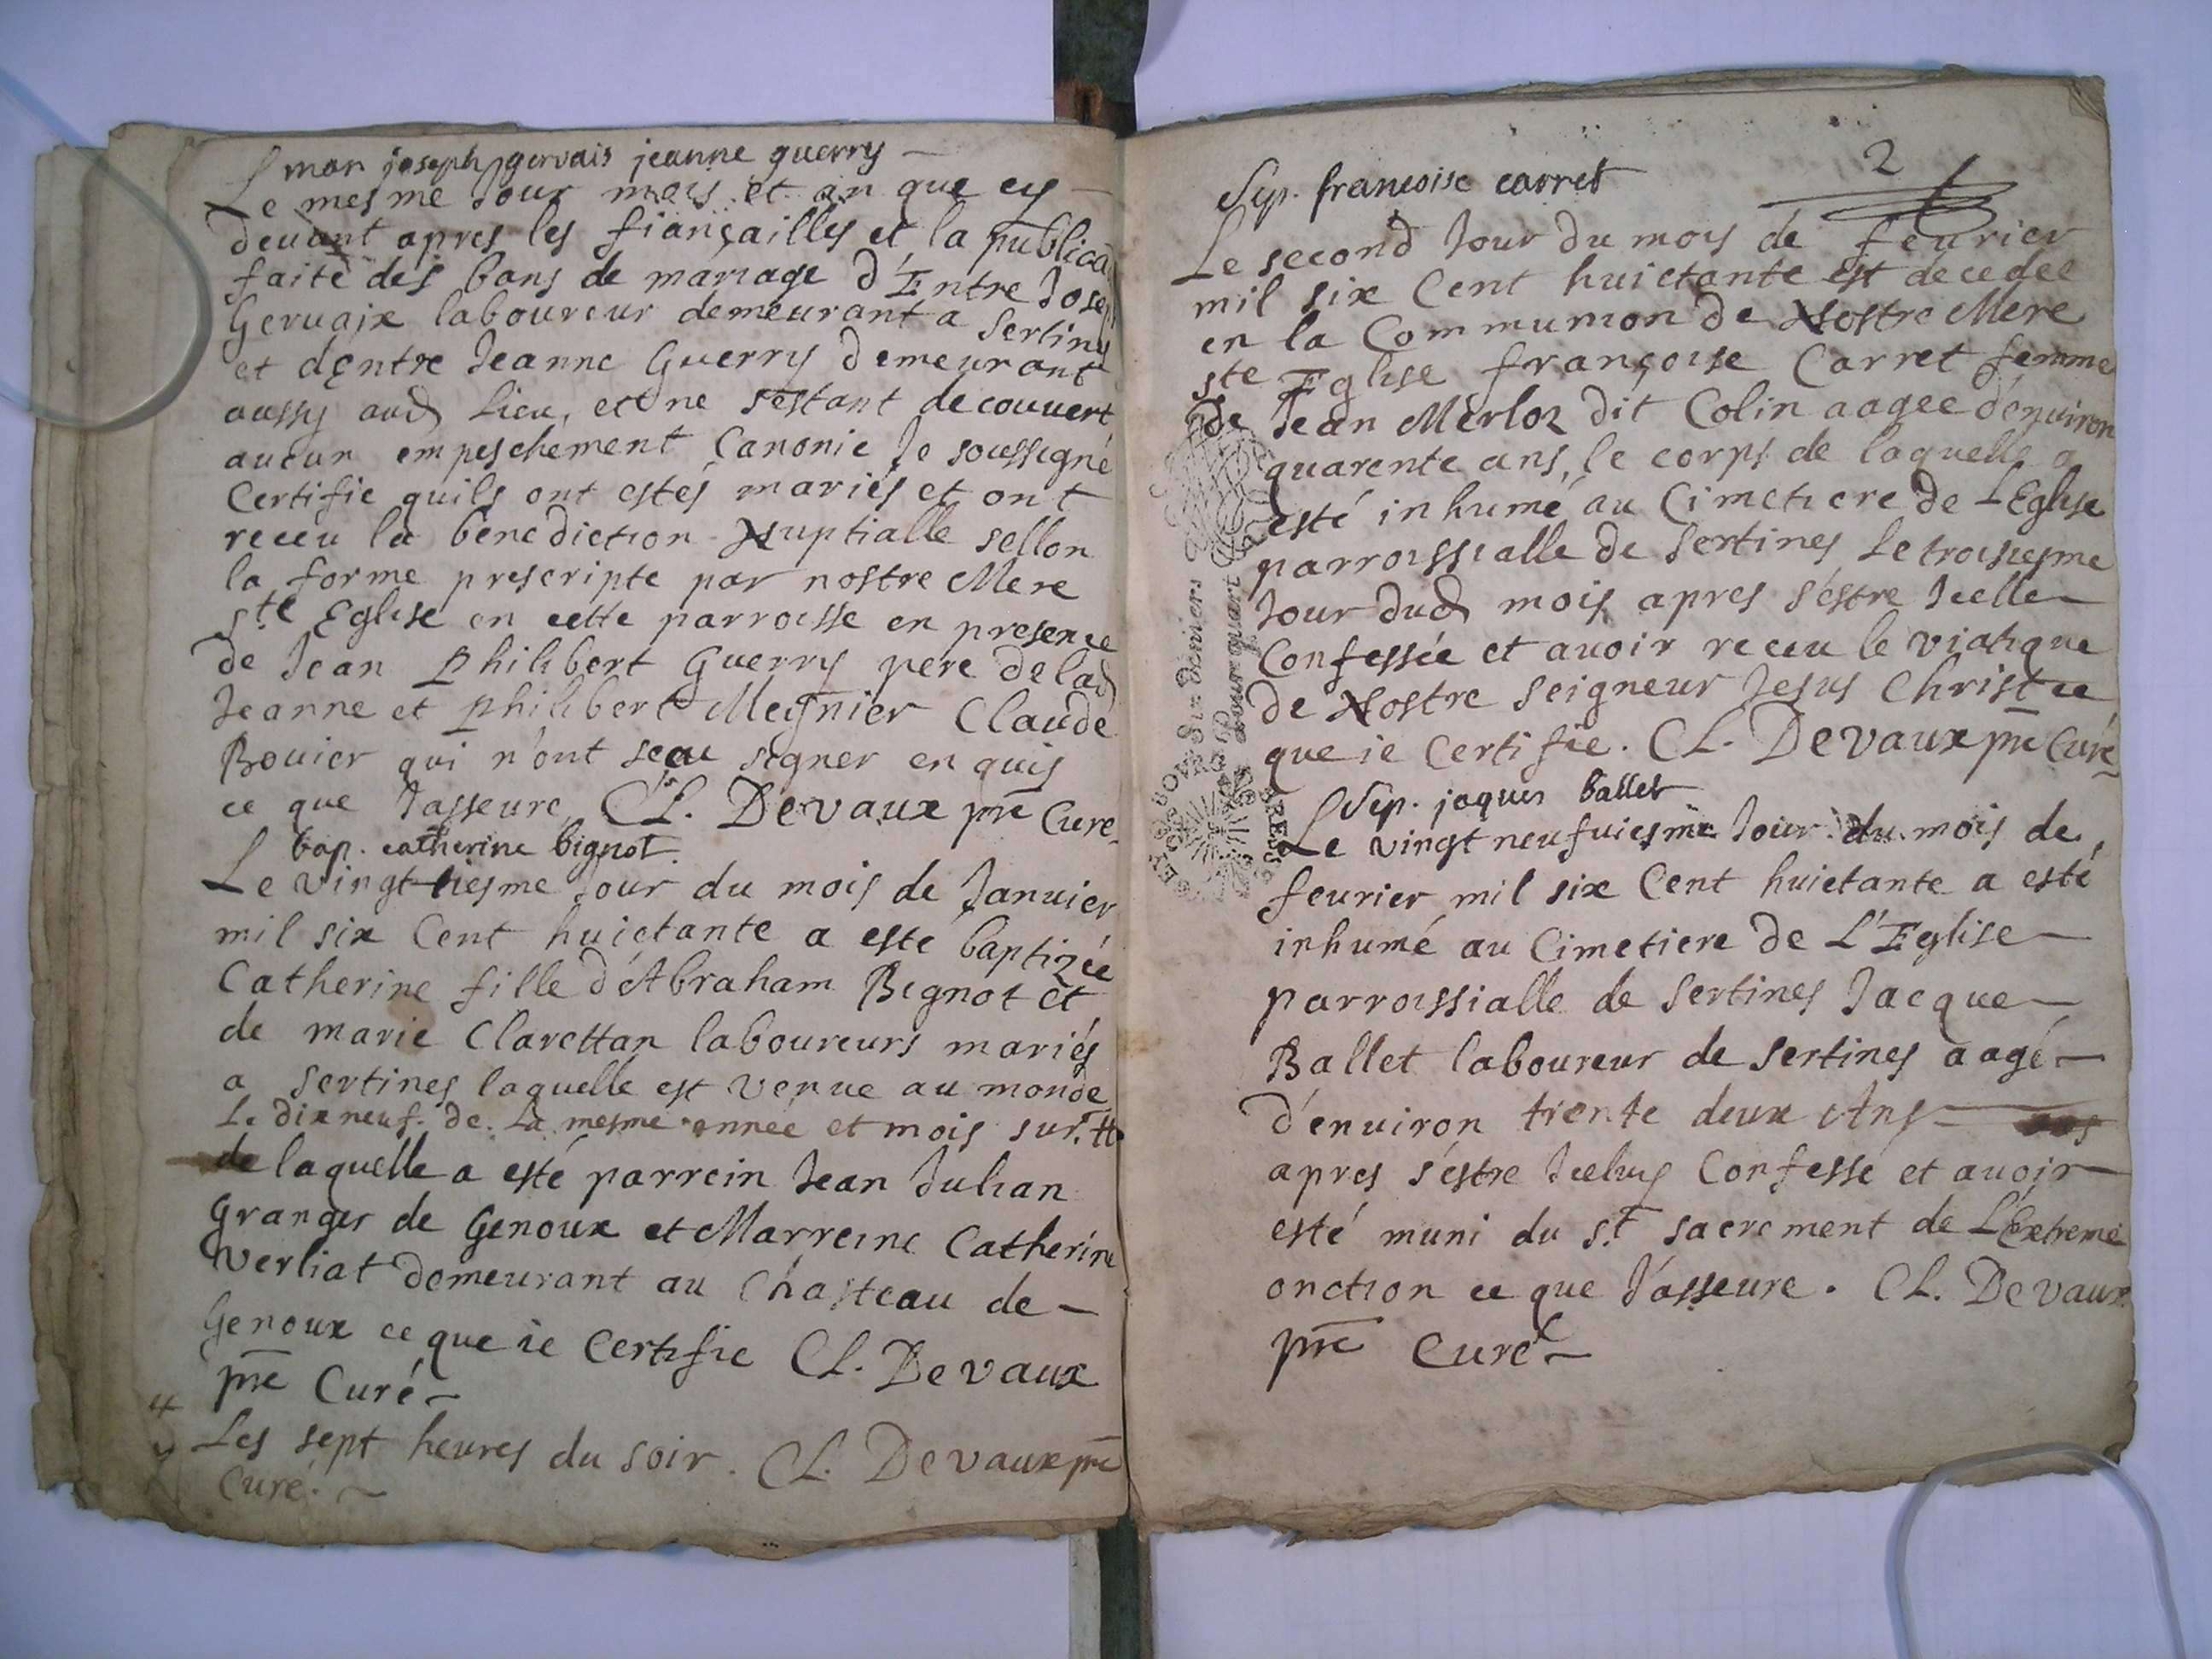 mar joseph gervais jeanne guerry
Le mesme Jour mois et an que cy
devant apres les fiançailles et la publica
faite des bans de mariage d'Entre Jose
Gervaix laboureur demeurant a Sertines
et dentre Jeanne Guerry demeurant
aussy aud Lieu, et ne sestant decouvert
aucun empeschement Canonic Je soussigné
Certifie quils ont estés mariés et ont
receu la benediction Nuptialle sellon
la forme prescripte par nostre Mere
ste Eglise en cette parroisse en presence
de Jean Philibert Guerry pere de lad
Jeanne et philibert Meynier Claude
Bouier qui n'ont sceu signer enquis
ce que Jasseure CL. Devaux pre Curé
bap. catherine bignot.
Le vingtiesme Jour du mois de Januier
mil six Cent huictante a esté baptizée
Catherine fille d'Abraham Bignot et
de marie Clarettan laboureurs mariés
a Sertines laquelle est venue au monde
Le dixneuf. de. La mesme année et mois sur. #
de laquelle a esté parrein Jean Julian
Granger de Genoux et Marreine Catherine
Verliat demeurant au Chasteau de
Genoux ce que ie Certifie CL. Devaux
pre Curé
# Les sept heures du soir. CL. Devaux pre
Curé.
2
Sep. francoise carret
Le second Jour du mois de feurier
mil six Cent huictante est decedee
en la Communion de Nostre Mere
ste Eglise françoise Carret femme
de Jean Merloz dit Colin aagee d'enuiron
quarente ans, le corps de laquelle a
esté inhumé au Cimetiere de L'Eglise
parroissialle de Sertines Le troisiesme
Jour dud mois apres s'éstre Icelle
Confessée et auoir receu le viatique
de Nostre Seigneur Jesus Christ ce
que ie Certifie. CL. Devaux pre Curé
Sep. jaques ballet
Le vingt neufuiesme Jour du mois de
feurier mil six Cent huictante a esté
inhumé au Cimetiere de L'Eglise
parroissialle de Sertines Jacque
Ballet laboureur de Sertines aagé
d'enuiron trente deux Ans
apres s'éstre Iceluy Confessé et auoir
esté muni du st. sacrement de L'Extreme
onction ce que J'asseure. CL. Devaux
pre Curé
Six deniers
pour quart